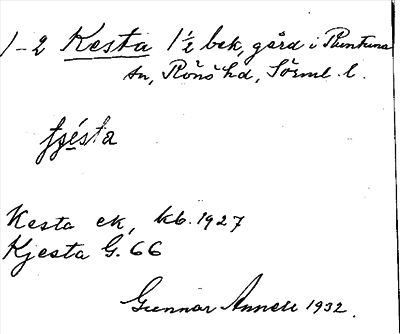 1-2 Kesta 1½ bek, gård i Runtuna
sn, Rönö hd, Sörml. l.
tjésta
Kesta ek, kb. 1927
Kjesta G. 66
Gunnar Annell 1932.